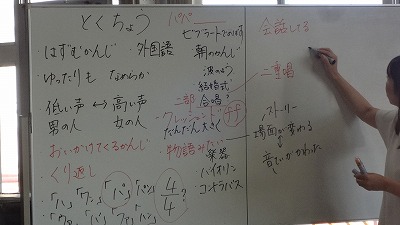 とくちょう
・はずむかんじ ・外国語
・ゆったりも なめらか
・低い声 ↔ 高い声
男の人 女の人
・おいかけてくるかんじ
・くり返し
「パ」
4/4?
パパ
ゼブラートでのばす
朝のかんじ
波のよう
結婚式
合唱?
二部
・クレッシェンド ff
だんだん大きく
・物語みたい
楽器
バイオリン
コントラバス
会話してる
二重唱
ストーリー
場面が変わる
音がかわった